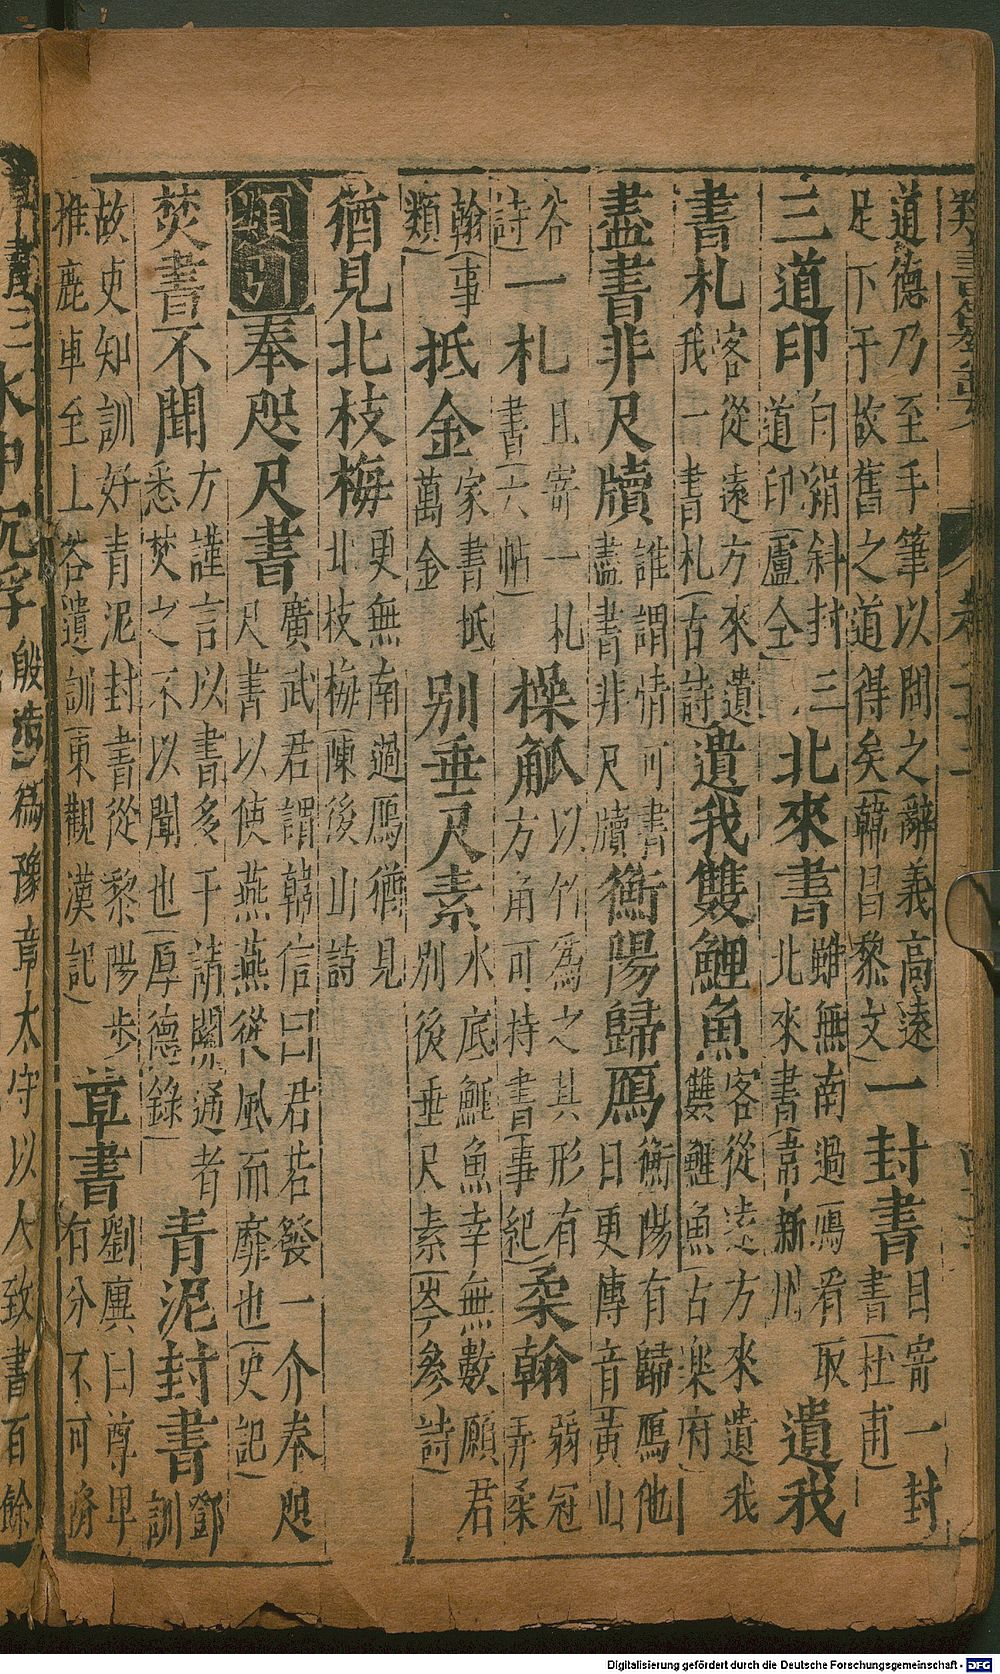 道德乃至手筆以間之辭義高遠
足下于故舊之道得矣(韓昌黎文)一封書目寄一封
書(杜甫)
三道印白絹斜封三
道印(盧仝)北來書雖無南過鴈看取
北來書(韋新州遺我
書札客從遠方來遺
我一書札(古詩遺我雙鯉魚客從遠方來遺我
雙鯉魚(古樂府
盡書非尺牘誰謂情可書
盡書非尺牘衡陽歸鴈衡陽有歸鴈他
日更傳音(黃山
谷
詩)一札且寄一札
書(六帖)操觚以竹為之其形有
方角可持書(事紀)柔翰弱冠弄柔
翰(事
類)抵金家書抵
萬金別垂尺素水底鯉魚幸無數願君
別後垂尺素(岑參詩)
猶見北枝梅更無南過鴈猶見
北枝梅(陳後山詩
類引奉咫尺書廣武君謂韓信曰君若發一介奉咫
尺書以使燕燕從風而靡也(史記)
焚書不聞方謹言以書多干請關通者
悉焚之不以聞也(厚德錄)青泥封書鄧
訓
故吏知訓好青泥封書從黎陽步
推鹿車至上谷遺訓(東觀漢記)草書劉廙曰尊卑
有分不可
水中沉浮殷浩)為豫章太守以人致書百餘
Digitalisierung gefördert durch die Deutsche Forschungsgemeinschaft - DFG